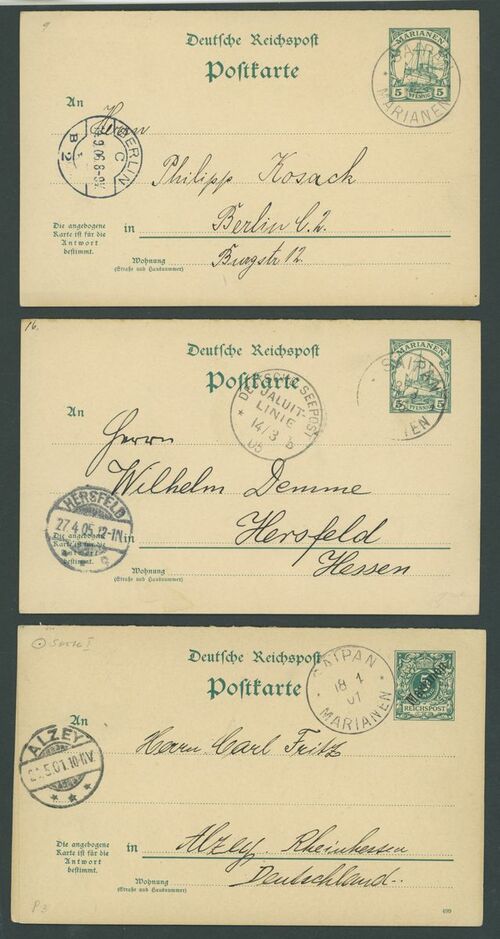 9
Deutsche Reichspost
Postkarte
MARIANEN
5 PFENNIG 5
SAIPAN
MARIANEN
An
Herrn
BERLIN
C
B
2
Philipp Kosack
in Berlin C. 2.
Burgstr 12.
Die angebogene
Karte ist für die
Antwort
bestimmt.
Wohnung
(Straße und Hausnummer)
16.
Deutsche Reichspost
Postkarte
MARIANEN
5 PFENNIG 5
SAIPAN
DEUTSCHE SEEPOST
JALUIT-
LINIE
14/3 b
05
An
Herrn
Wilhelm Demme
HERSFELD
27.4.05.12-1N.
Hersfeld
Hessen
Die angebogene
Karte ist für die
Antwort
bestimmt.
in
Wohnung
(Straße und Hausnummer)
Sorte I
Deutsche Reichspost
Postkarte
Marianen
REICHSPOST
SAIPAN
18 1
01
MARIANEN
An
Herrn Carl Fritz
ALZEY
5.01.10-11V.
in Alzey. Rheinhessen
Deutschland.
Die angebogene
Karte ist für die
Antwort
bestimmt.
Wohnung
(Straße und Hausnummer)
P3
499